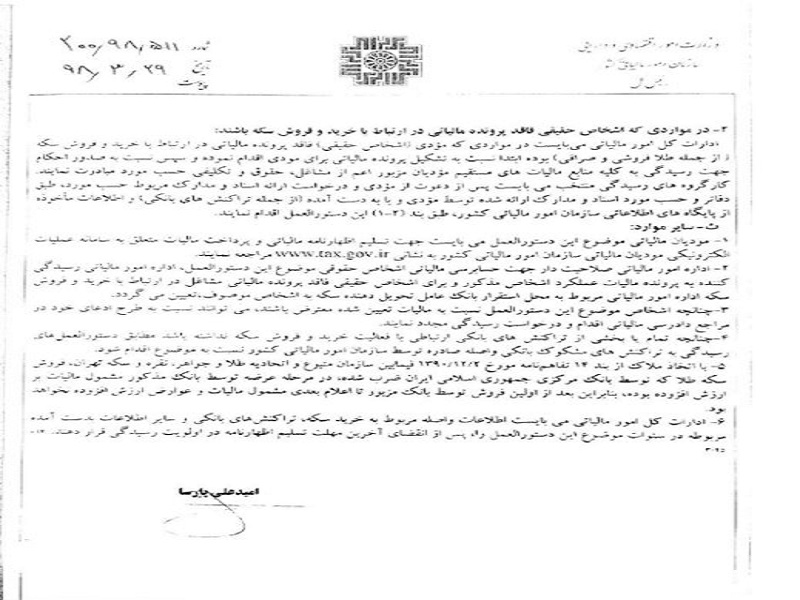 وزارت امور اقتصادی و دارایی
سازمان امور مالیاتی کشور
رئیس کل
شماره ۲۰۰/۹۸/۵۱۱
تاریخ ۹۸/۳/۲۹
پیوست
۲- در مواردی که اشخاص حقیقی فاقد پرونده مالیاتی در ارتباط با خرید و فروش سکه باشند:
ادارات کل امور مالیاتی می‌بایست در مواردی که مؤدی (اشخاص حقیقی) فاقد پرونده مالیاتی در ارتباط با خرید و فروش سکه
( از جمله طلا فروشی و صرافی) بوده ابتدا نسبت به تشکیل پرونده مالیاتی برای مودی اقدام نموده و سپس نسبت به صدور احکام
جهت رسیدگی به کلیه منابع مالیات های مستقیم مؤدیان مزبور اعم از مشاغل، حقوق و تکلیفی حسب مورد مبادرت نمایند.
کارگروه های رسیدگی منتخب می بایست پس از دعوت از مؤدی و درخواست ارائه اسناد و مدارک مربوط حسب مورد، طبق
دفاتر و حسب مورد اسناد و مدارک ارائه شده توسط مؤدی و یا به دست آمده (از جمله تراکنش های بانکی) و اطلاعات مأخوذه
از پایگاه های اطلاعاتی سازمان امور مالیاتی کشور، طبق بند (۲-۱) این دستورالعمل اقدام نمایند.
ث- سایر موارد:
۱- مودیان مالیاتی موضوع این دستورالعمل می بایست جهت تسلیم اظهارنامه مالیاتی و پرداخت مالیات متعلق به سامانه عملیات
الکترونیکی مودیان مالیاتی سازمان امور مالیاتی کشور به نشانی www.tax.gov.ir مراجعه نمایند.
۲- اداره امور مالیاتی صلاحیت دار جهت حسابرسی مالیاتی اشخاص حقوقی موضوع این دستورالعمل، اداره امور مالیاتی رسیدگی
کننده به پرونده مالیات عملکرد اشخاص مذکور و برای اشخاص حقیقی فاقد پرونده مالیاتی مشاغل در ارتباط با خرید و فروش
سکه اداره امور مالیاتی مربوط به محل استقرار بانک عامل تحویل دهنده سکه به اشخاص موصوف، تعیین می گردد.
۳- چنانچه اشخاص موضوع این دستورالعمل نسبت به مالیات تعیین شده معترض باشند، می توانند نسبت به طرح ادعای خود در
مراجع دادرسی مالیاتی اقدام و درخواست رسیدگی مجدد نمایند.
۴- چنانچه تمام یا بخشی از تراکنش های بانکی ارتباطی با فعالیت خرید و فروش سکه نداشته باشد مطابق دستورالعمل‌های
رسیدگی به تراکنش های مشکوک بانکی واصله صادره توسط سازمان امور مالیاتی کشور نسبت به موضوع اقدام شود.
۵- با اتخاذ ملاک از بند ۱۴ تفاهم‌نامه مورخ ۱۳۹۰/۱۲/۲ فیمابین سازمان متبوع و اتحادیه طلا و جواهر، نقره و سکه تهران، فروش
سکه طلا که توسط بانک مرکزی جمهوری اسلامی ایران ضرب شده، در مرحله عرضه توسط بانک مذکور مشمول مالیات بر
ارزش افزوده بوده، بنابراین بعد از اولین فروش توسط بانک مزبور تا اعلام بعدی مشمول مالیات و عوارض ارزش افزوده نخواهد
بود.
۶- ادارات کل امور مالیاتی می بایست اطلاعات واصله مربوط به خرید سکه، تراکنش‌های بانکی و سایر اطلاعات بدست آمده
مربوطه در سنوات موضوع این دستورالعمل را، پس از انقضای آخرین مهلت تسلیم اظهارنامه در اولویت رسیدگی قرار دهند.
امیدعلی پارسا